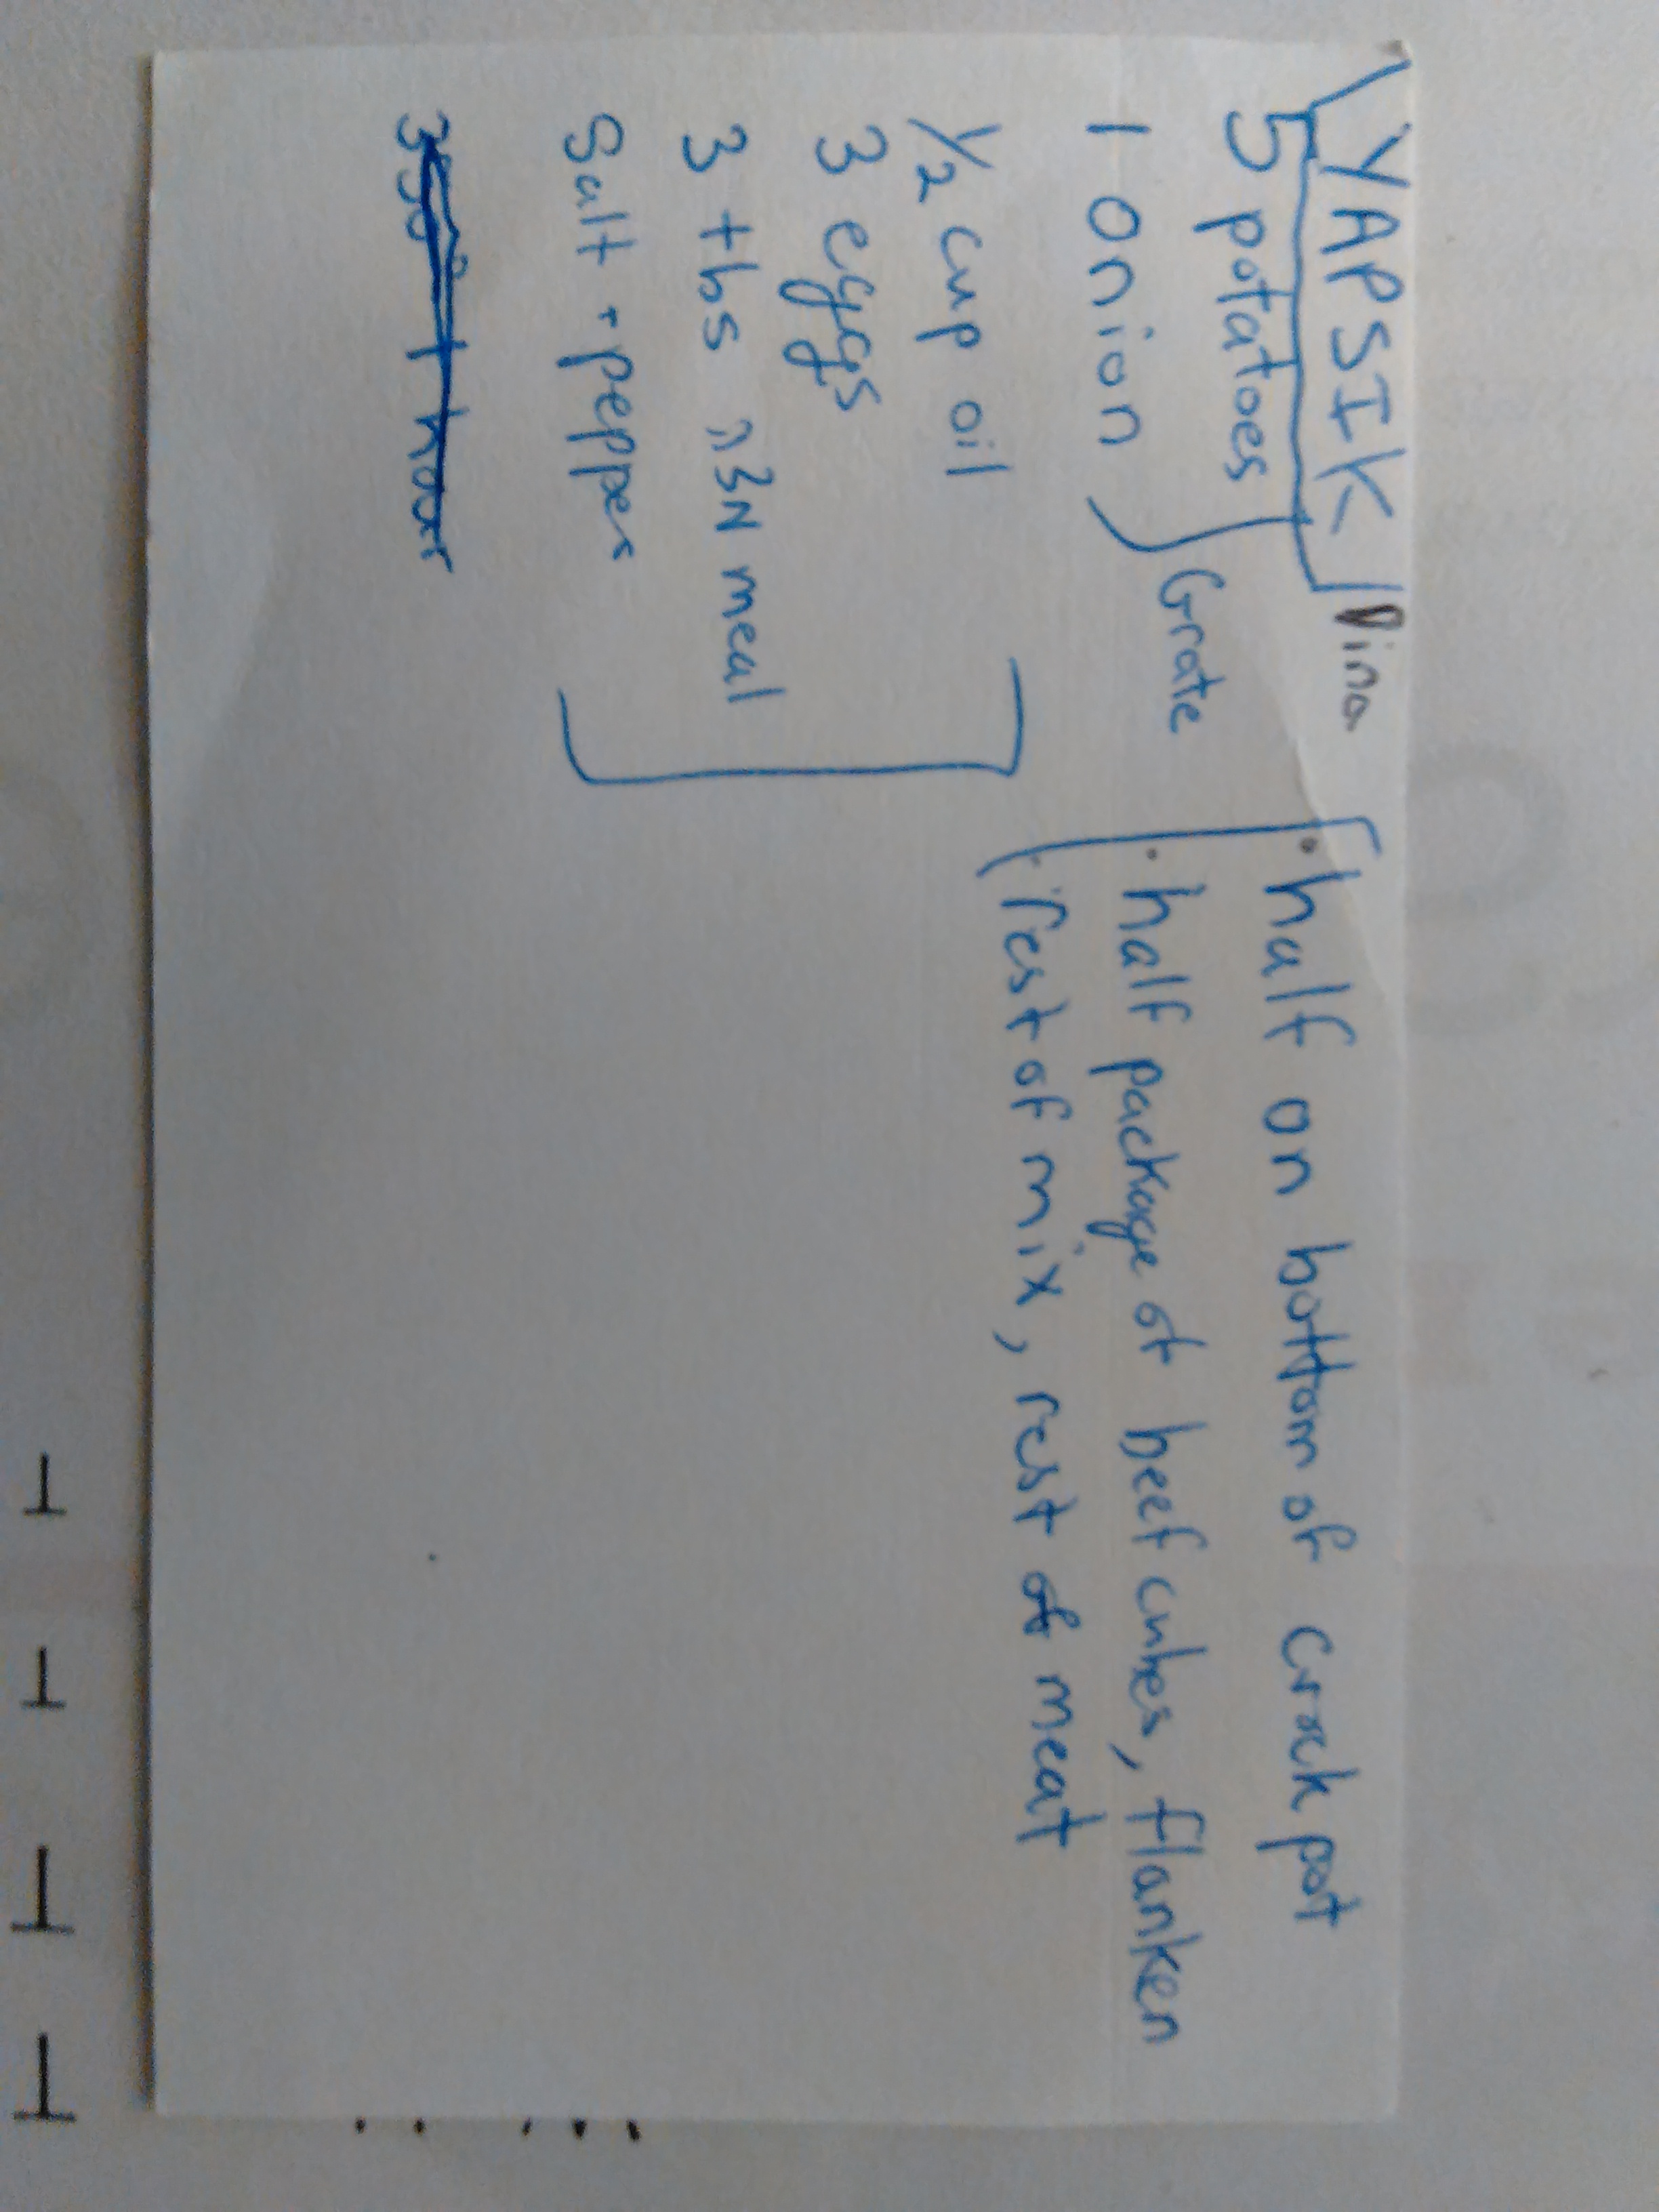 YAPSIK Dina
5 potatoes
1 onion
Grate
1/2 cup oil
3 eggs
3 tbs מצה meal
Salt + pepper
350° 1 hour
• half on bottom of crock pot
• half package of beef cubes, flanken
• rest of mix, rest of meat